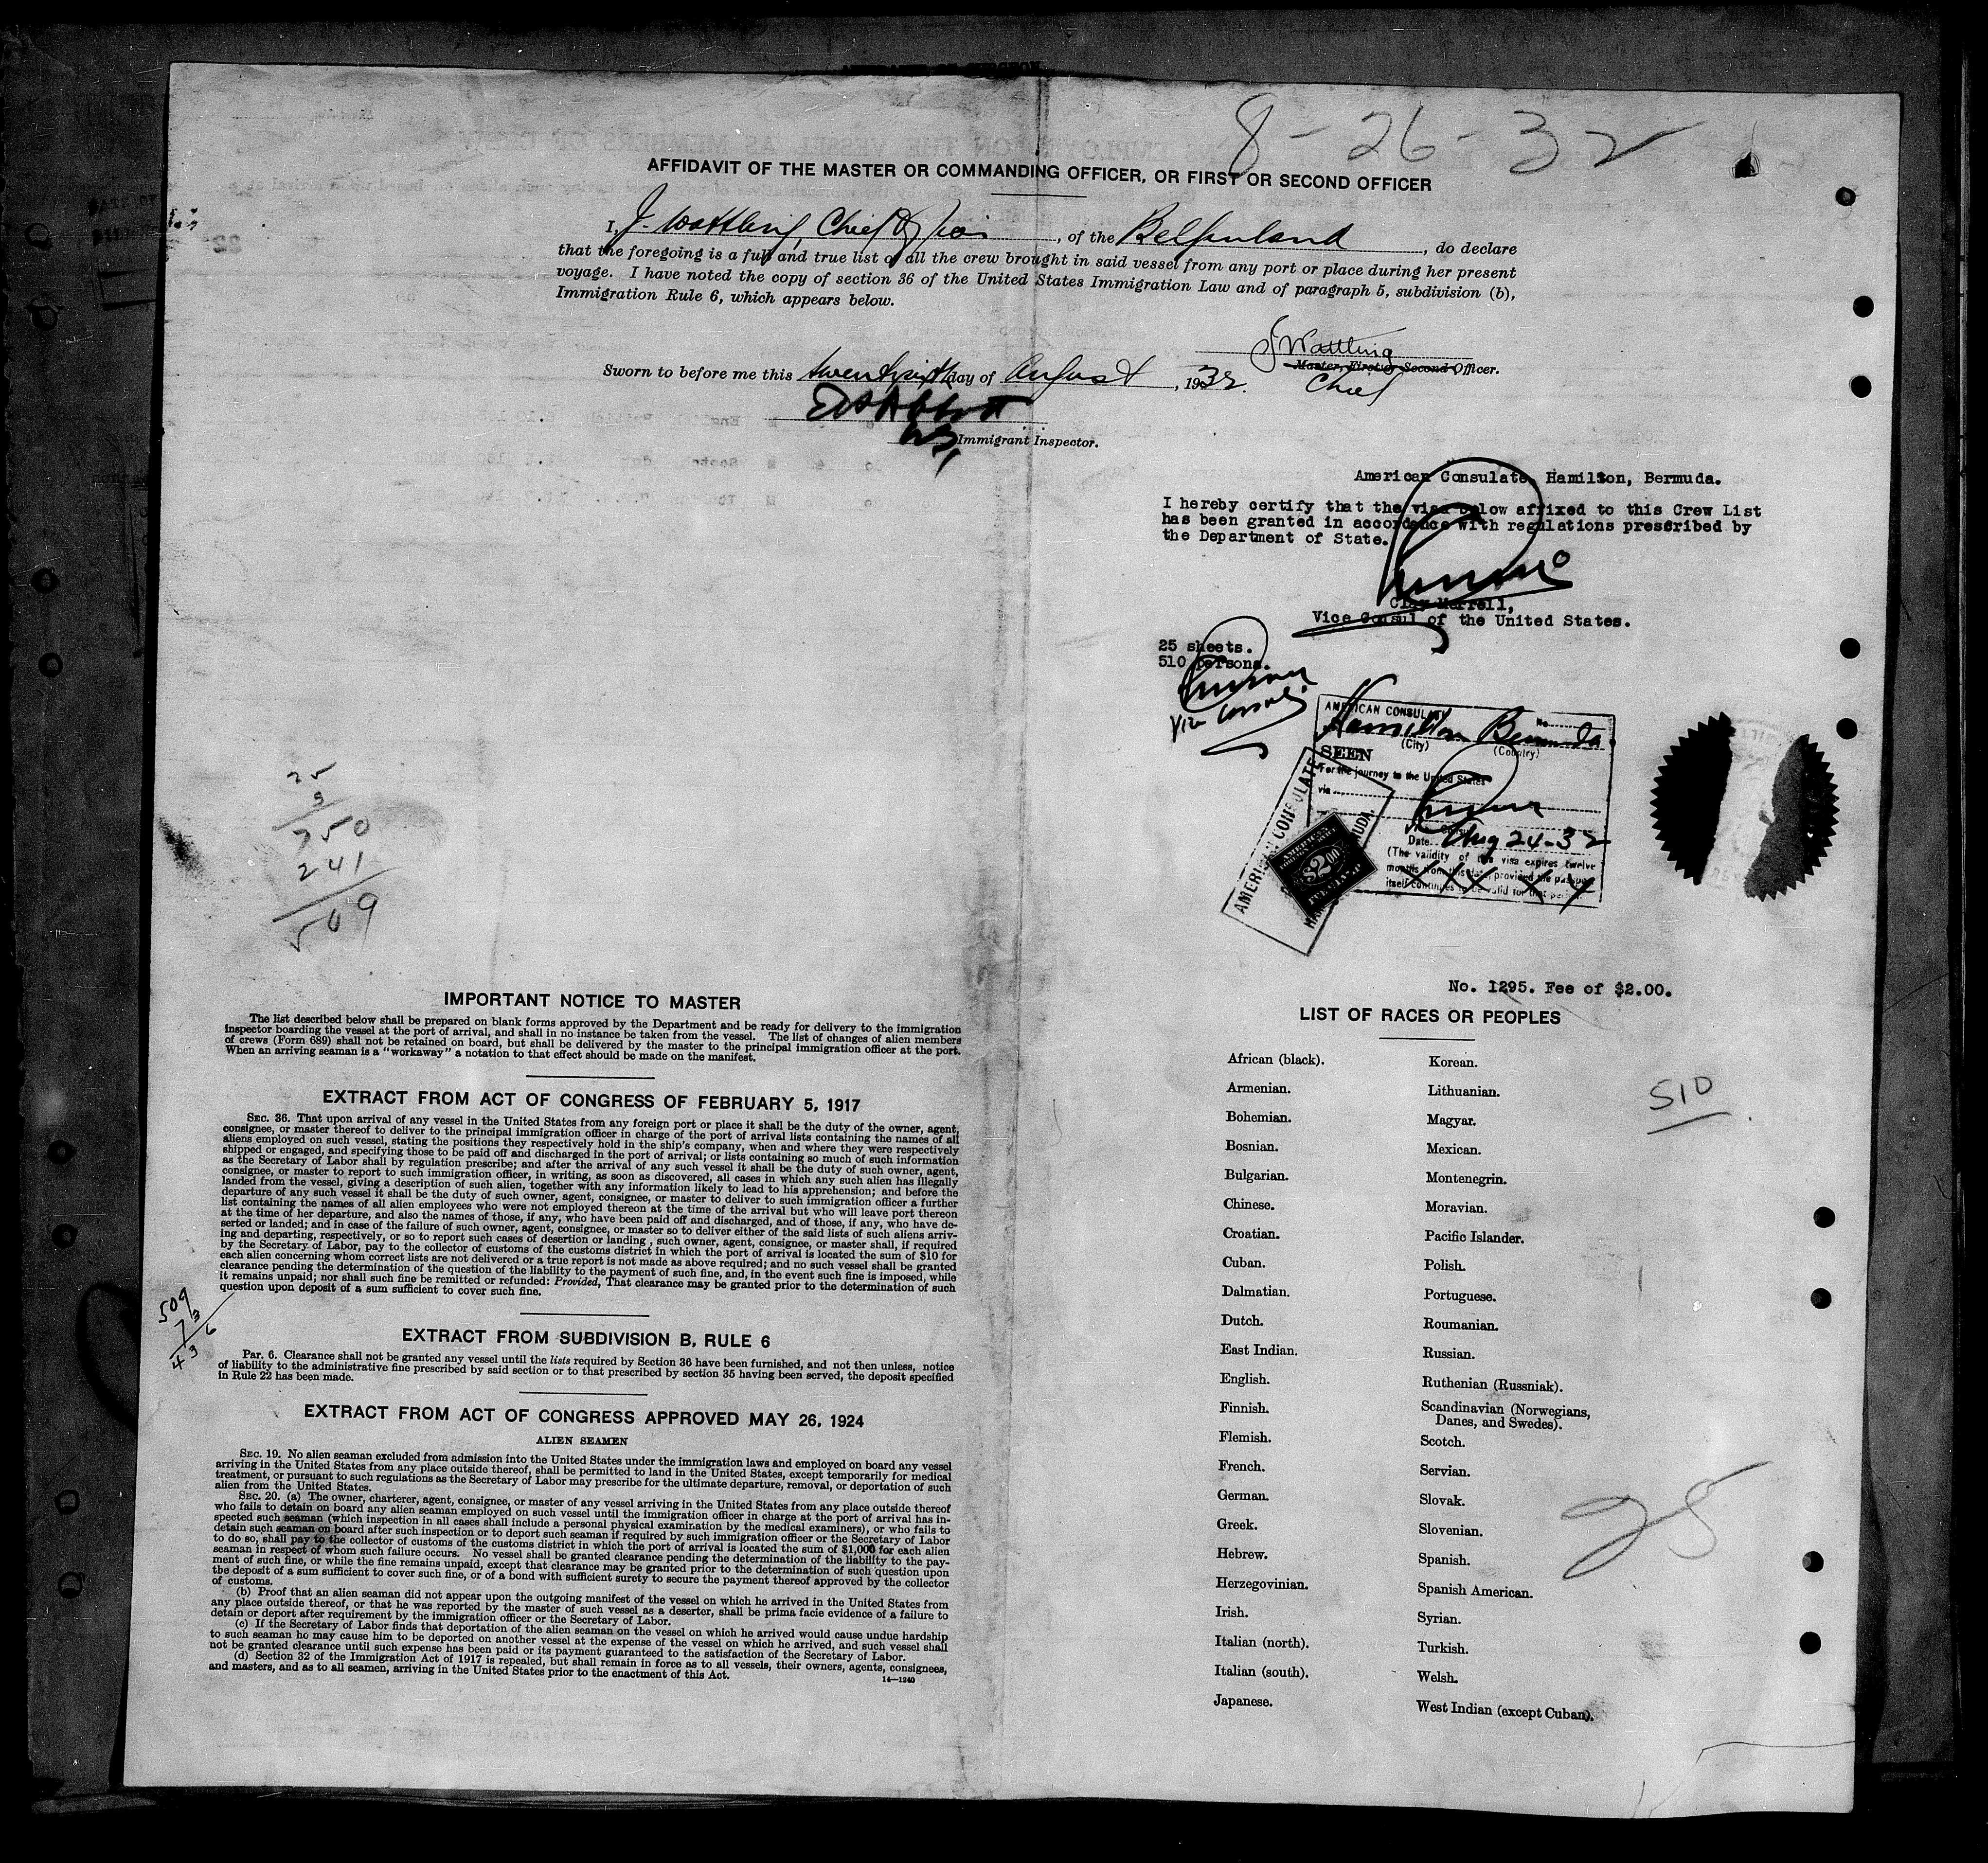 8-26-32
AFFIDAVIT OF THE MASTER OR COMMANDING OFFICER, OR FIRST OR SECOND OFFICER
I, J. Wattling, Chief Officer, of the Belgenland, do declare
that the foregoing is a full and true list of all the crew brought in said vessel from any port or place during her present
voyage. I have noted the copy of section 36 of the United States Immigration Law and of paragraph 5, subdivision (b),
Immigration Rule 6, which appears below.
J Wattling
Master, First or Second Officer.
Chief
Sworn to before me this twentysixth day of August, 1932.
Immigrant Inspector.
American Consulate, Hamilton, Bermuda.
I hereby certify that the visa below affixed to this Crew List
has been granted in accordance with regulations prescribed by
the Department of State.
Clay Merrell,
Vice Consul of the United States.
25 sheets.
510 persons.
Vice Consul
AMERICAN CONSULATE No.
Hamilton Bermuda.
(City) (Country)
SEEN
For the journey to the United States
via
Date Aug 24-32
(The validity of this visa expires twelve
months from this date provided the passport
itself continues to be valid for that period.
XXX XX
AMERICAN CONSULATE
$2.00
25
3
750
241
509
No. 1295. Fee of $2.00.
IMPORTANT NOTICE TO MASTER
The list described below shall be prepared on blank forms approved by the Department and be ready for delivery to the immigration
inspector boarding the vessel at the port of arrival, and shall in no instance be taken from the vessel. The list of changes of alien members
of crews (Form 689) shall not be retained on board, but shall be delivered by the master to the principal immigration officer at the port.
When an arriving seaman is a "workaway" a notation to that effect should be made on the manifest.
EXTRACT FROM ACT OF CONGRESS OF FEBRUARY 5, 1917
SEC. 36. That upon arrival of any vessel in the United States from any foreign port or place it shall be the duty of the owner, agent,
consignee, or master thereof to deliver to the principal immigration officer in charge of the port of arrival lists containing the names of all
aliens employed on such vessel, stating the positions they respectively hold in the ship's company, when and where they were respectively
shipped or engaged, and specifying those to be paid off and discharged in the port of arrival; or lists containing so much of such information
as the Secretary of Labor shall by regulation prescribe; and after the arrival of any such vessel it shall be the duty of such owner, agent,
consignee, or master to report to such immigration officer, in writing, as soon as discovered, all cases in which any such alien has illegally
landed from the vessel, giving a description of such alien, together with any information likely to lead to his apprehension; and before the
departure of any such vessel it shall be the duty of such owner, agent, consignee, or master to deliver to such immigration officer a further
list containing the names of all alien employees who were not employed thereon at the time of the arrival but who will leave port thereon
at the time of her departure, and also the names of those, if any, who have been paid off and discharged, and of those, if any, who have de-
serted or landed; and in case of the failure of such owner, agent, consignee, or master so to deliver either of the said lists of such aliens arriv-
ing and departing, respectively, or so to report such cases of desertion or landing , such owner, agent, consignee, or master shall, if required
by the Secretary of Labor, pay to the collector of customs of the customs district in which the port of arrival is located the sum of $10 for
each alien concerning whom correct lists are not delivered or a true report is not made as above required; and no such vessel shall be granted
clearance pending the determination of the question of the liability to the payment of such fine, and, in the event such fine is imposed, while
it remains unpaid; nor shall such fine be remitted or refunded: Provided, That clearance may be granted prior to the determination of such
question upon deposit of a sum sufficient to cover such fine.
509
73
436
EXTRACT FROM SUBDIVISION B, RULE 6
Par. 6. Clearance shall not be granted any vessel until the lists required by Section 36 have been furnished, and not then unless, notice
of liability to the administrative fine prescribed by said section or to that prescribed by section 35 having been served, the deposit specified
in Rule 22 has been made.
EXTRACT FROM ACT OF CONGRESS APPROVED MAY 26, 1924
ALIEN SEAMEN
SEC. 19. No alien seaman excluded from admission into the United States under the immigration laws and employed on board any vessel
arriving in the United States from any place outside thereof, shall be permitted to land in the United States, except temporarily for medical
treatment, or pursuant to such regulations as the Secretary of Labor may prescribe for the ultimate departure, removal, or deportation of such
alien from the United States.
SEC. 20. (a) The owner, charterer, agent, consignee, or master of any vessel arriving in the United States from any place outside thereof
who fails to detain on board any alien seaman employed on such vessel until the immigration officer in charge at the port of arrival has in-
spected such seaman (which inspection in all cases shall include a personal physical examination by the medical examiners), or who fails to
detain such seaman on board after such inspection or to deport such seaman if required by such immigration officer or the Secretary of Labor
to do so, shall pay to the collector of customs of the customs district in which the port of arrival is located the sum of $1,000 for each alien
seaman in respect of whom such failure occurs. No vessel shall be granted clearance pending the determination of the liability to the pay-
ment of such fine, or while the fine remains unpaid, except that clearance may be granted prior to the determination of such question upon
the deposit of a sum sufficient to cover such fine, or of a bond with sufficient surety to secure the payment thereof approved by the collector
of customs.
(b) Proof that an alien seaman did not appear upon the outgoing manifest of the vessel on which he arrived in the United States from
any place outside thereof, or that he was reported by the master of such vessel as a deserter, shall be prima facie evidence of a failure to
detain or deport after requirement by the immigration officer or the Secretary of Labor.
(c) If the Secretary of Labor finds that deportation of the alien seaman on the vessel on which he arrived would cause undue hardship
to such seaman he may cause him to be deported on another vessel at the expense of the vessel on which he arrived, and such vessel shall
not be granted clearance until such expense has been paid or its payment guaranteed to the satisfaction of the Secretary of Labor.
(d) Section 32 of the Immigration Act of 1917 is repealed, but shall remain in force as to all vessels, their owners, agents, consignees,
and masters, and as to all seamen, arriving in the United States prior to the enactment of this Act.
14—1240
LIST OF RACES OR PEOPLES
African (black). Korean.
Armenian. Lithuanian.
Bohemian. Magyar.
Bosnian. Mexican.
Bulgarian. Montenegrin.
Chinese. Moravian.
Croatian. Pacific Islander.
Cuban. Polish.
Dalmatian. Portuguese.
Dutch. Roumanian.
East Indian. Russian.
English. Ruthenian (Russniak).
Finnish. Scandinavian (Norwegians,
Danes, and Swedes).
Flemish. Scotch.
French. Servian.
German. Slovak.
Greek. Slovenian.
Hebrew. Spanish.
Herzegovinian. Spanish American.
Irish. Syrian.
Italian (north). Turkish.
Italian (south). Welsh.
Japanese. West Indian (except Cuban).
510
25